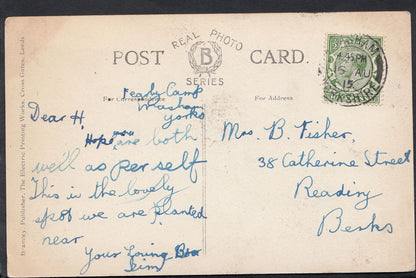 REAL PHOTO
POST B CARD.
SERIES
For Correspondence
For Address
Bramley, Publisher, The Electric Printing Works, Cross Gates, Leeds
4.45PM
AU
15
YORKSHIRE
Camp
Yorks
Dear H.
Hope you are both
well as per self
This is the lovely
spot we are planted
near
Your Loving Bro
Jim
Mrs. B. Fisher,
38 Catherine Street
Reading
Berks